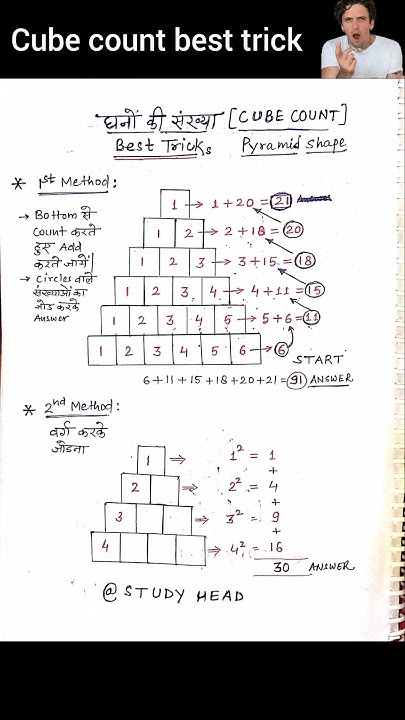 Cube count best trick
घनों की संख्या [CUBE COUNT]
Best Tricks Pyramid shape
* 1st Method:
→ Bottom से
Count करते
हुए Add
करते जायें
→ Circles वाले
संख्याओं का
जोड़ करके
Answer
1 → 1 + 20 = 21 Answer
1 2 → 2 + 18 = 20
1 2 3 → 3 + 15 = 18
1 2 3 4 → 4 + 11 = 15
1 2 3 4 5 → 5 + 6 = 11
1 2 3 4 5 6 → 6
START
6 + 11 + 15 + 18 + 20 + 21 = 91 ANSWER
* 2nd Method:
वर्ग करके
जोड़ना
1 ⇒ 1² = 1
+
2 ⇒ 2² = 4
+
3 ⇒ 3² = 9
+
4 ⇒ 4² = 16
30 ANSWER
@ STUDY HEAD